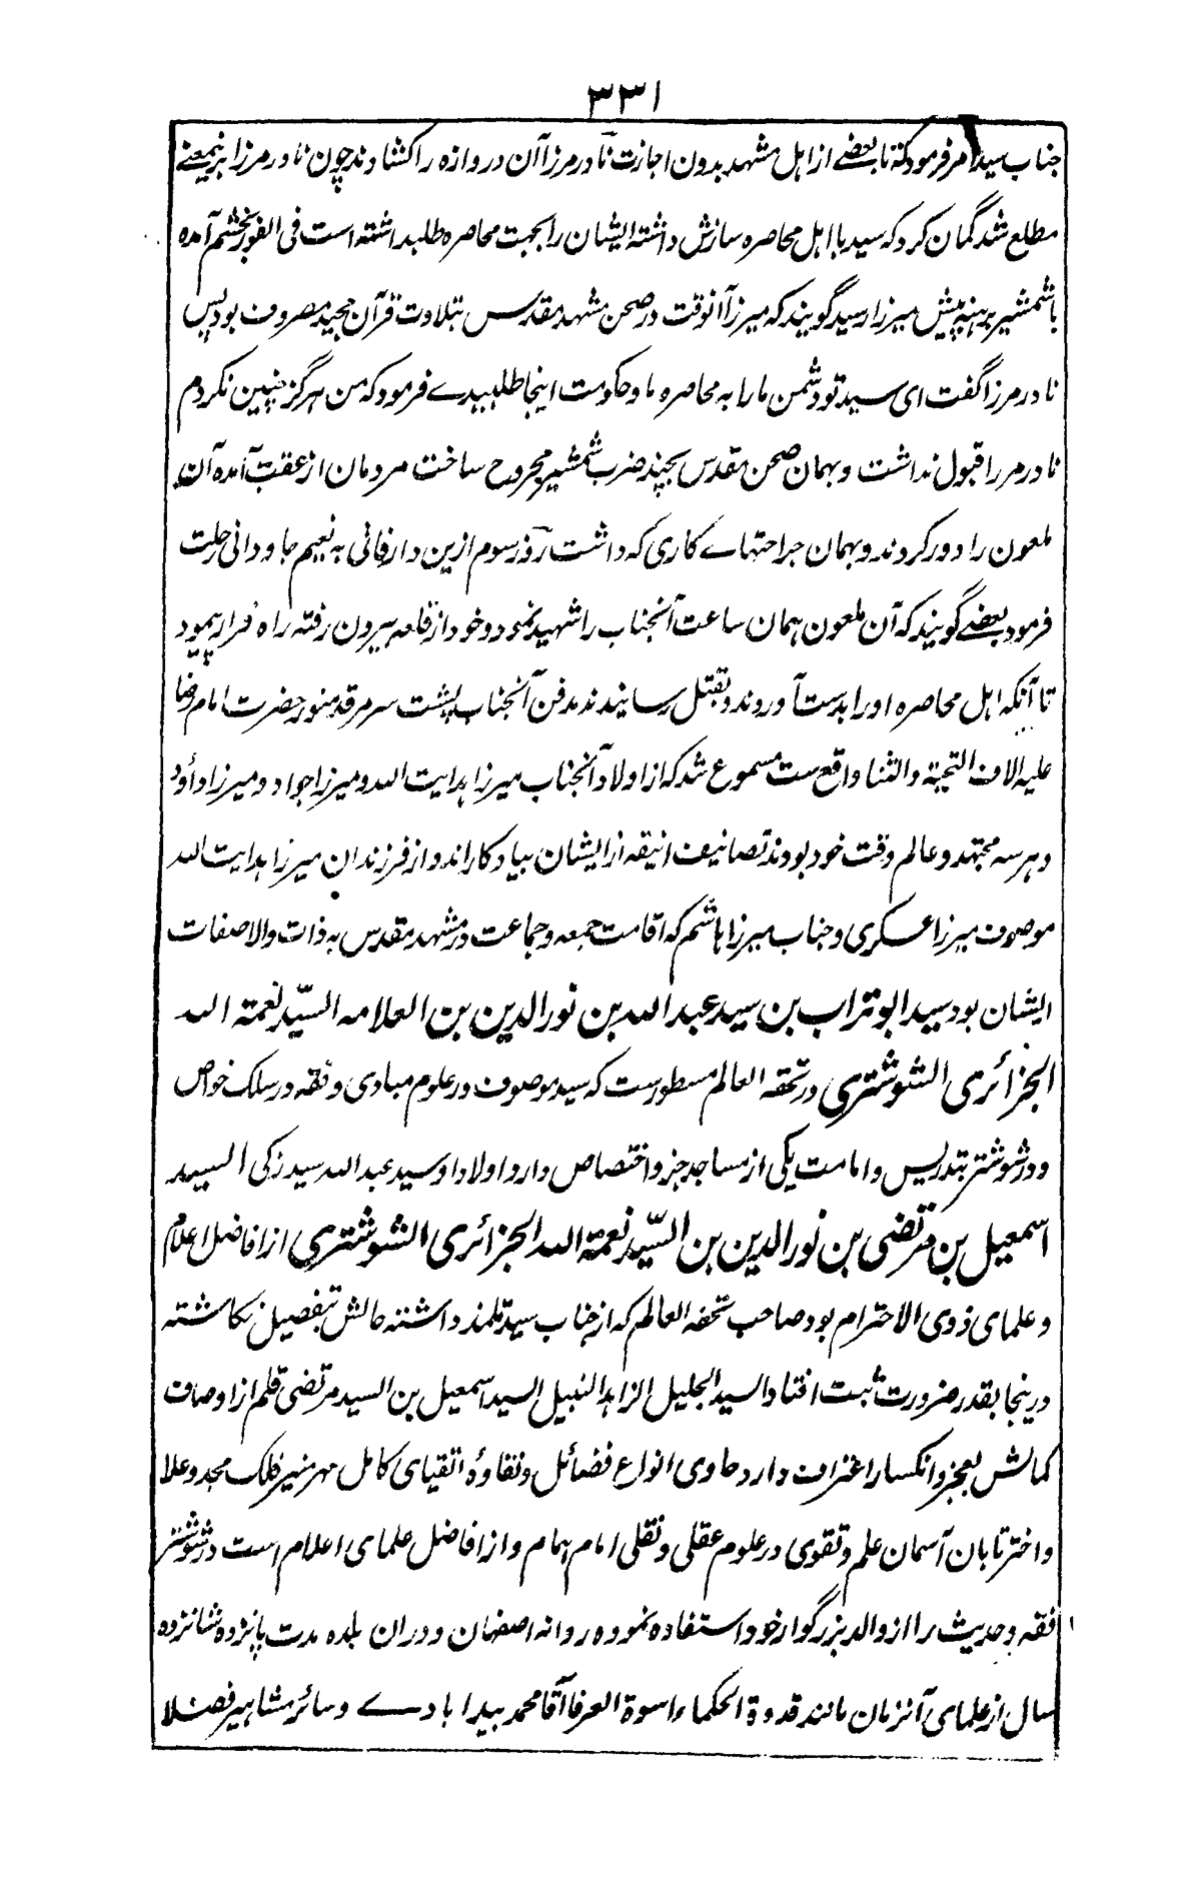 ۳۳۱
جناب سید امر فرمود که تا بعضے از اہل مشہد بدون اجازت نادر مرزا آن دروازہ را کشادند چون نادر مرزا برینمعنے
مطلع شد گمان کرد کہ سید با اہل محاصرہ سازش داشتہ ایشان را بجہت محاصرہ طلبداشتہ است فی الفور بخشم آمدہ
با شمشیر برہنہ پیش میرزا رسید گویند کہ میرزا آنوقت در صحن مشہد مقدس بتلاوت قرآن مجید مصروف بود پس
نادر مرزا گفت ای سید تو دشمن ما را بہ محاصرہ ما و حکومت اینجا طلبیدے فرمود کہ من ہرگز چنین نکردم
نادر مرزا قبول نداشت و بہمان صحن مقدس بچند ضرب شمشیر مجروح ساخت مردمان از عقب آمدہ آن
ملعون را دور کردند و بہمان جراحتہاے کاری کہ داشت روز سوم ازین دار فانی بہ نعیم جاودانی رحلت
فرمود بعضے گویند کہ آن ملعون ہمان ساعت آنجناب را شہید نمود و خود از قلعہ بیرون رفتہ راہ فرار پیمود
تا آنکہ اہل محاصرہ او را بدست آوردند و بقتل رسانیدند مدفن آنجناب پشت سر مرقد منور حضرت امام رضا
علیہ الاف التحیۃ و الثنا واقع ست مسموع شد کہ از اولاد آنجناب میرزا ہدایت اللہ و میرزا جواد و میرزا داؤد
و ہر سہ مجتہد و عالم وقت خود بودند تصانیف انیقہ از ایشان بیادگار اند و از فرزندان میرزا ہدایت اللہ
موصوف میرزا عسکری و جناب میرزا ہاشم کہ اقامت جمعہ و جماعت در مشہد مقدس بہ ذات والا صفات
ایشان بود سید ابو تراب بن سید عبد اللہ بن نور الدین بن العلامہ السیّد نعمۃ اللہ
الجزائری الشوشتری در تحفہ العالم مسطور ست کہ سید موصوف در علوم مبادی و فقہ در سلک خواص
و در شوشتر بتدریس و امامت یکی از مساجد جزو اختصاص دارد اولاد او سید عبد اللہ سید زکی السید
اسمعیل بن مرتضی بن نور الدین بن السیّد نعمۃ اللہ الجزائری الشوشتری از افاضل اعلام
و علمای ذوی الاحترام بود صاحب تحفہ العالم کہ از جناب سید تلمذ داشتہ حالش بتفصیل نگاشتہ
درینجا بقدر ضرورت ثبت افتاد السید الجلیل الزاہد النبیل السید اسمعیل بن السید مرتضی قلم از اوصاف
کمالش بعجز و انکسار اعتراف دارد حاوی انواع فضائل و نقاوۂ اتقیای کامل مہر منیر فلک مجد و علا
و اختر تابان آسمان علم و تقوی در علوم عقلی و نقلی امام ہمام و از افاضل علمای اعلام است در شوشتر
فقہ و حدیث را از والد بزرگوار خود استفادہ نمودہ روانہ اصفہان و دران بلدہ مدت پانزدہ شانزدہ
سال از علمای آنزمان مانند قدوۃ الحکماء اسوۃ العرفا آقا محمد بیدابادے و سائر مشاہیر فضلا